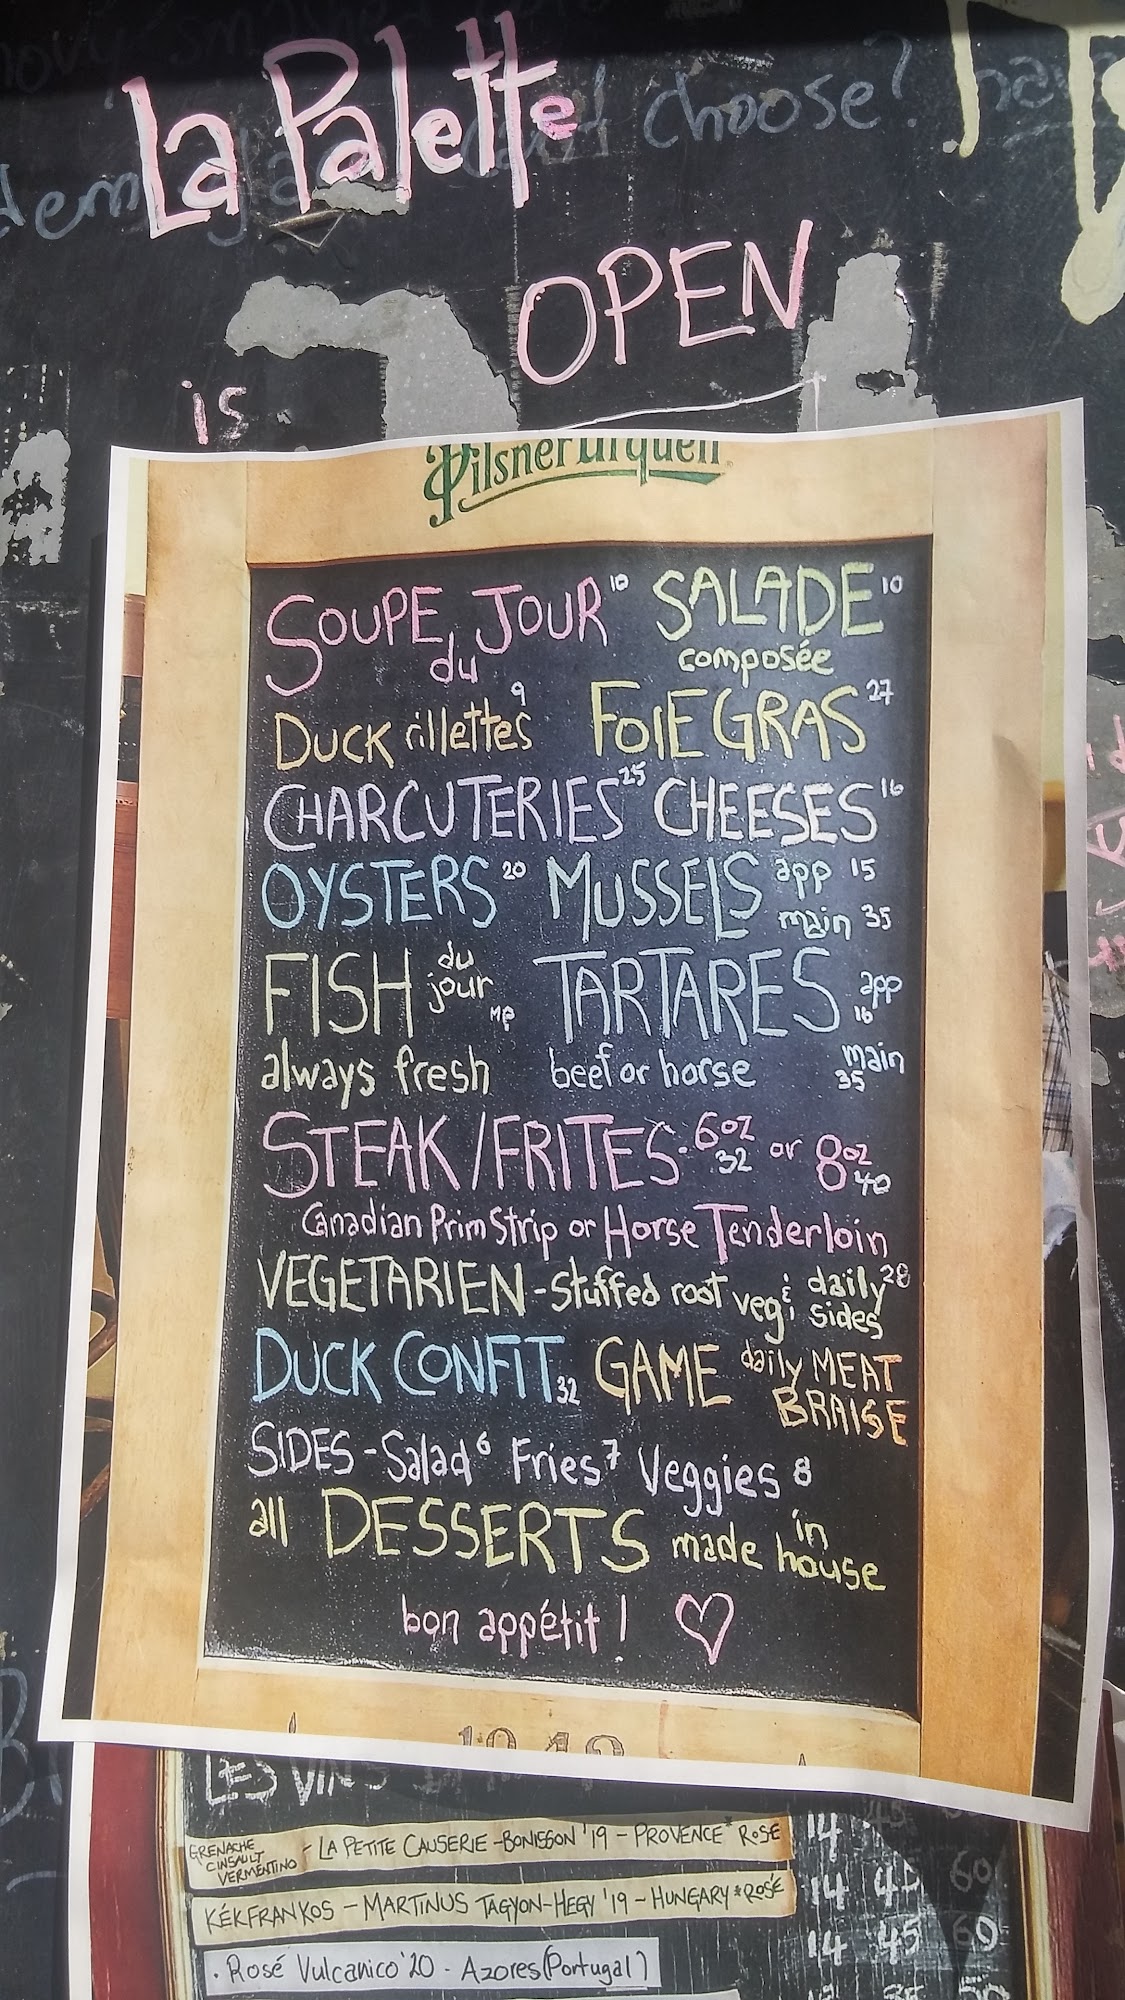 La Palette
choose?
is OPEN
Pilsner Urquell
SOUPE du JOUR 10 SALADE composée 10
DUCK rillettes 9 FOIE GRAS 27
CHARCUTERIES 25 CHEESES 16
OYSTERS 20 MUSSELS app 15 main 35
FISH du jour MP TARTARES app 16
always fresh beef or horse main 35
STEAK/FRITES - 6oz 32 or 8oz 40
Canadian Prim Strip or Horse Tenderloin
VEGETARIEN - Stuffed root veg & daily sides 28
DUCK CONFIT 32 GAME daily MEAT BRAISE
SIDES - Salad 6 Fries 7 Veggies 8
all DESSERTS made in house
bon appétit! ♡
LES VINS
GRENACHE CINSAULT VERMENTINO - LA PETITE CAUSERIE - BONISSON '19 - PROVENCE * ROSÉ 14 45 60
KÉKFRANKOS - MARTINUS TAGYON-HEGY '19 - HUNGARY * ROSÉ 14 45 60
• Rosé Vulcanico '20 - Azores (Portugal) 14 45 60